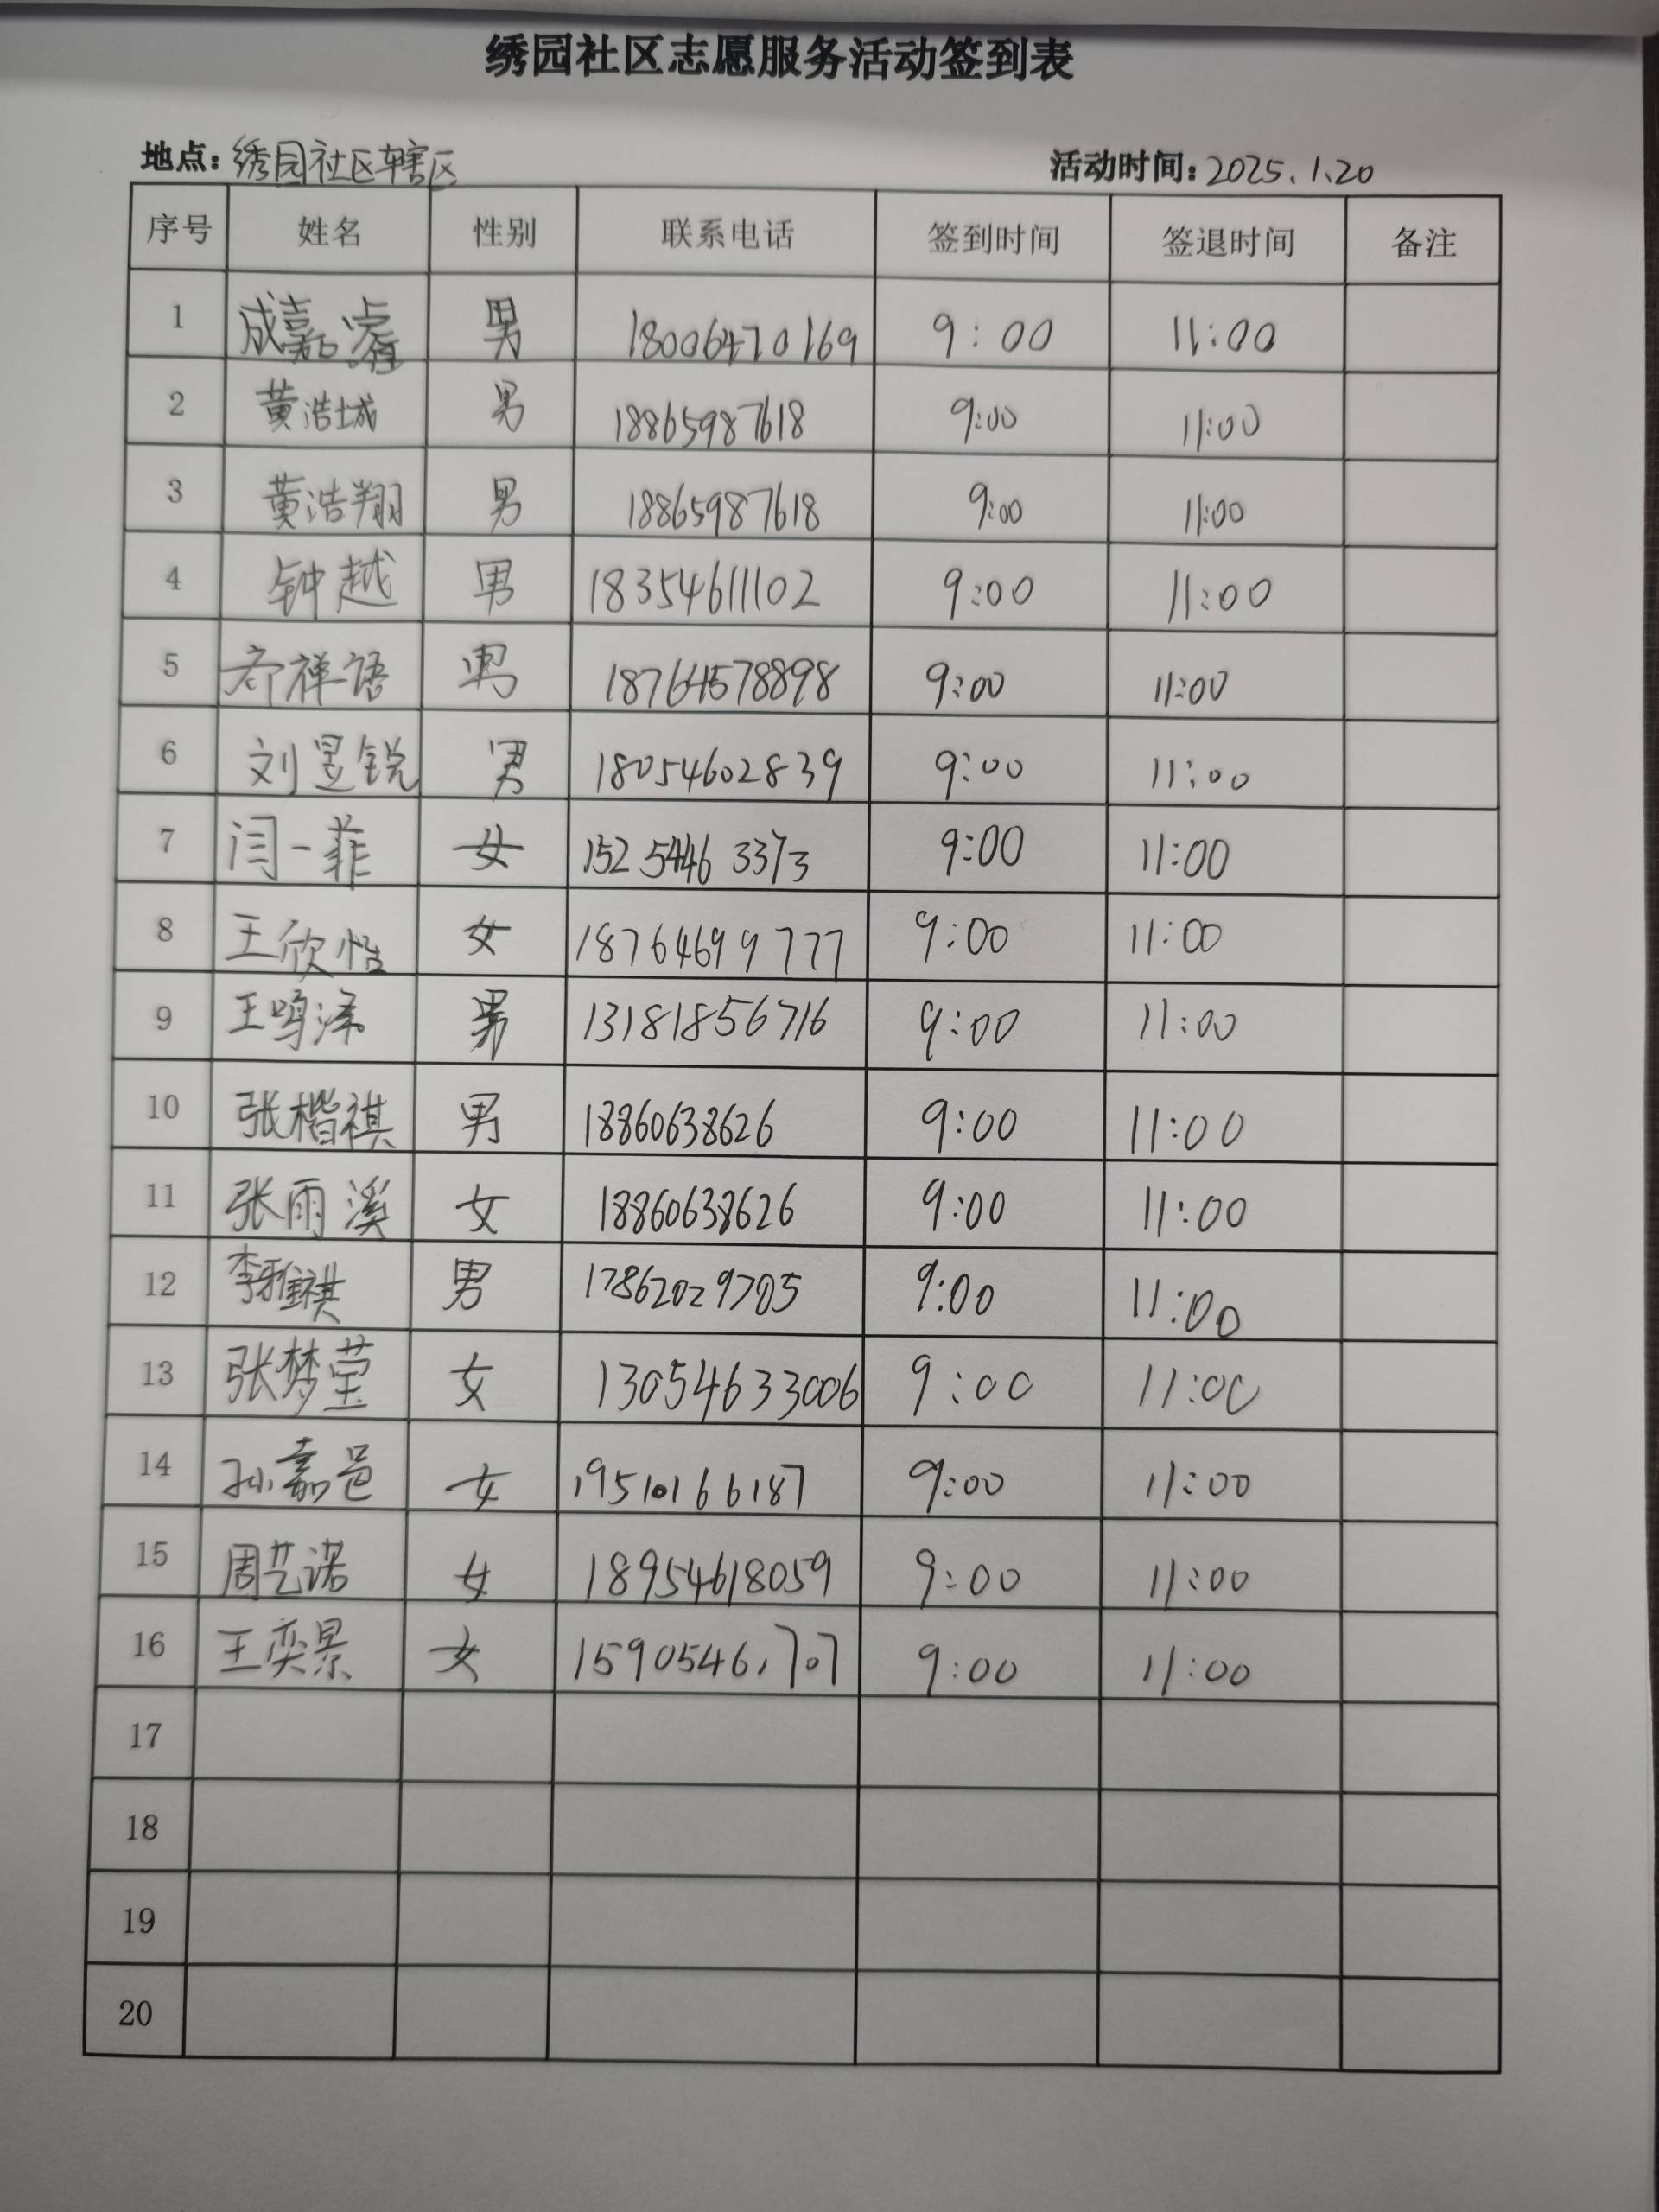 绣园社区志愿服务活动签到表
地点:绣园社区辖区 活动时间:2025.1.20
序号 姓名 性别 联系电话 签到时间 签退时间 备注
1 成嘉睿 男 18006470169 9:00 11:00
2 黄浩城 男 18865987618 9:00 11:00
3 黄浩翔 男 18865987618 9:00 11:00
4 钟越 男 18354611102 9:00 11:00
5 禅语 男 18764578898 9:00 11:00
6 刘昱锐 男 18054602839 9:00 11:00
7 闫一菲 女 152 5446 3373 9:00 11:00
8 王欣怡 女 18764699777 9:00 11:00
9 王鸣泽 男 13181856716 9:00 11:00
10 张楷祺 男 18860638626 9:00 11:00
11 张雨溪 女 18860638626 9:00 11:00
12 李雅祺 男 17862029705 9:00 11:00
13 张梦莹 女 13054633006 9:00 11:00
14 孙嘉邑 女 19510166187 9:00 11:00
15 周艺诺 女 18954618059 9:00 11:00
16 王奕景 女 9:00 11:00
17
18
19
20